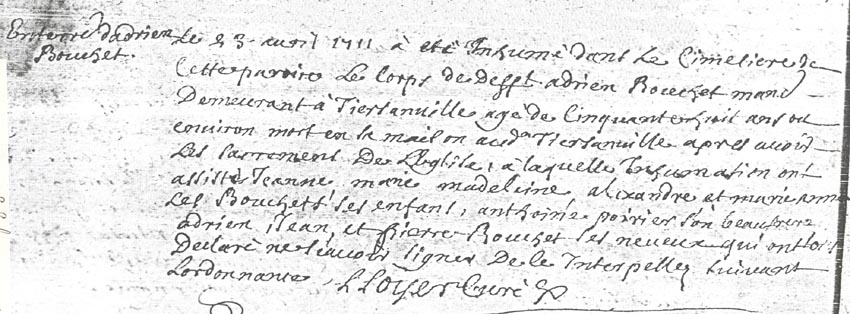 Enterré d'adrien
Bouchet.
Le 23 avril 1711 a eté Inhumé dans Le Cimetiere de
Cette paroisse Le Corps de Defft adrien Bouchet
Demeurant à Tiersanville agé de Cinquante huit ans ou
environ mort en sa maison aud Tiersanville apres avoir
Les sacrement De L'Eglise, a laquelle Inhumation ont
assisté Jeanne marie madeleine alixandre et marie anne
Les Bouchets ses enfant, anthoine poirier son beaufrere
adrien, Jean, et Pierre Bouchet ses neveux qui ont tous
Declaré ne sçavoir signer De ce Interpellez suivant
Lordonnance, Curé